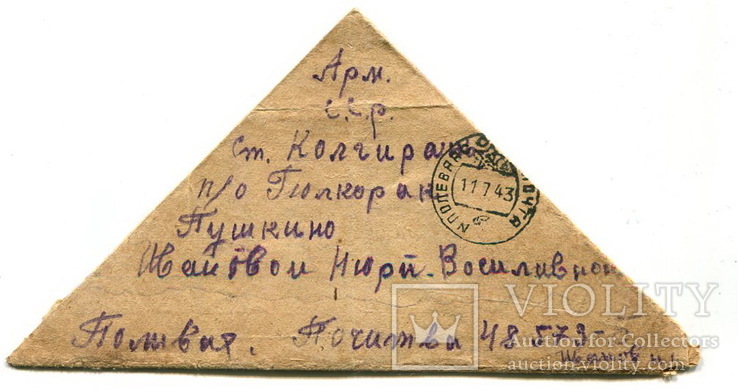 Арм.
С.С.р.
ст. Колгиран
п/о Гюлкоран
Пушкино
Василивной
Полевая. Почта 48579-
ПОЛЕВАЯ ПОЧТА
11 7 43
VIOLITY
Auction for Collectors
auction.violity.com